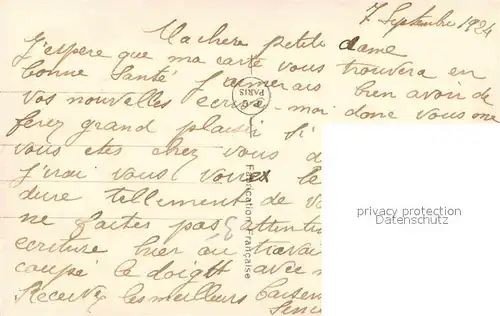 7 Septembre 1924
Ma chere petite dame
J'espere que ma carte vous trouvera en
bonne Santé J'aimerais bien avoir de
vos nouvelles ecrive-moi donc vous me
ferez grand plaisir Si
vous etes chez vous
J'irai vous voir le
dure tellement de
ne faites pas attenti
ecriture hier au travai
coupé le doigt avec
Recevez les meilleurs baise
PARIS
Fabrication Française
privacy protection
Datenschutz